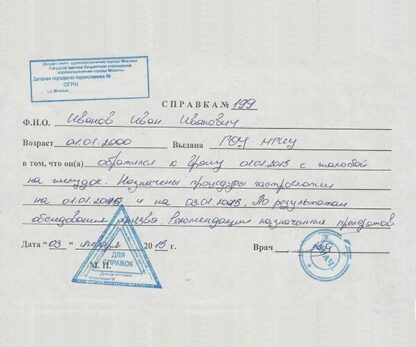 Департамент здравоохранения города Москвы
Государственное бюджетное учреждение
здравоохранения города Москвы
Детская городская поликлиника №
ОГРН
г. Москва
СПРАВКА № 199
Ф.И.О. Иванов Иван Иванович
Возраст 01.01.2000 Выдана РОУ
в том, что он(а) обратился к врачу 01.01.2015 с жалобой
на желудок. Назначены процедуры гастроскопии
на 01.01.2015 и на 03.01.2015. По результатам
обследования язва. Рекомендации назначения препаратов
Дата "03" января 2015 г. Врач
М.П.
ДЛЯ
СПРАВОК
ВРАЧ